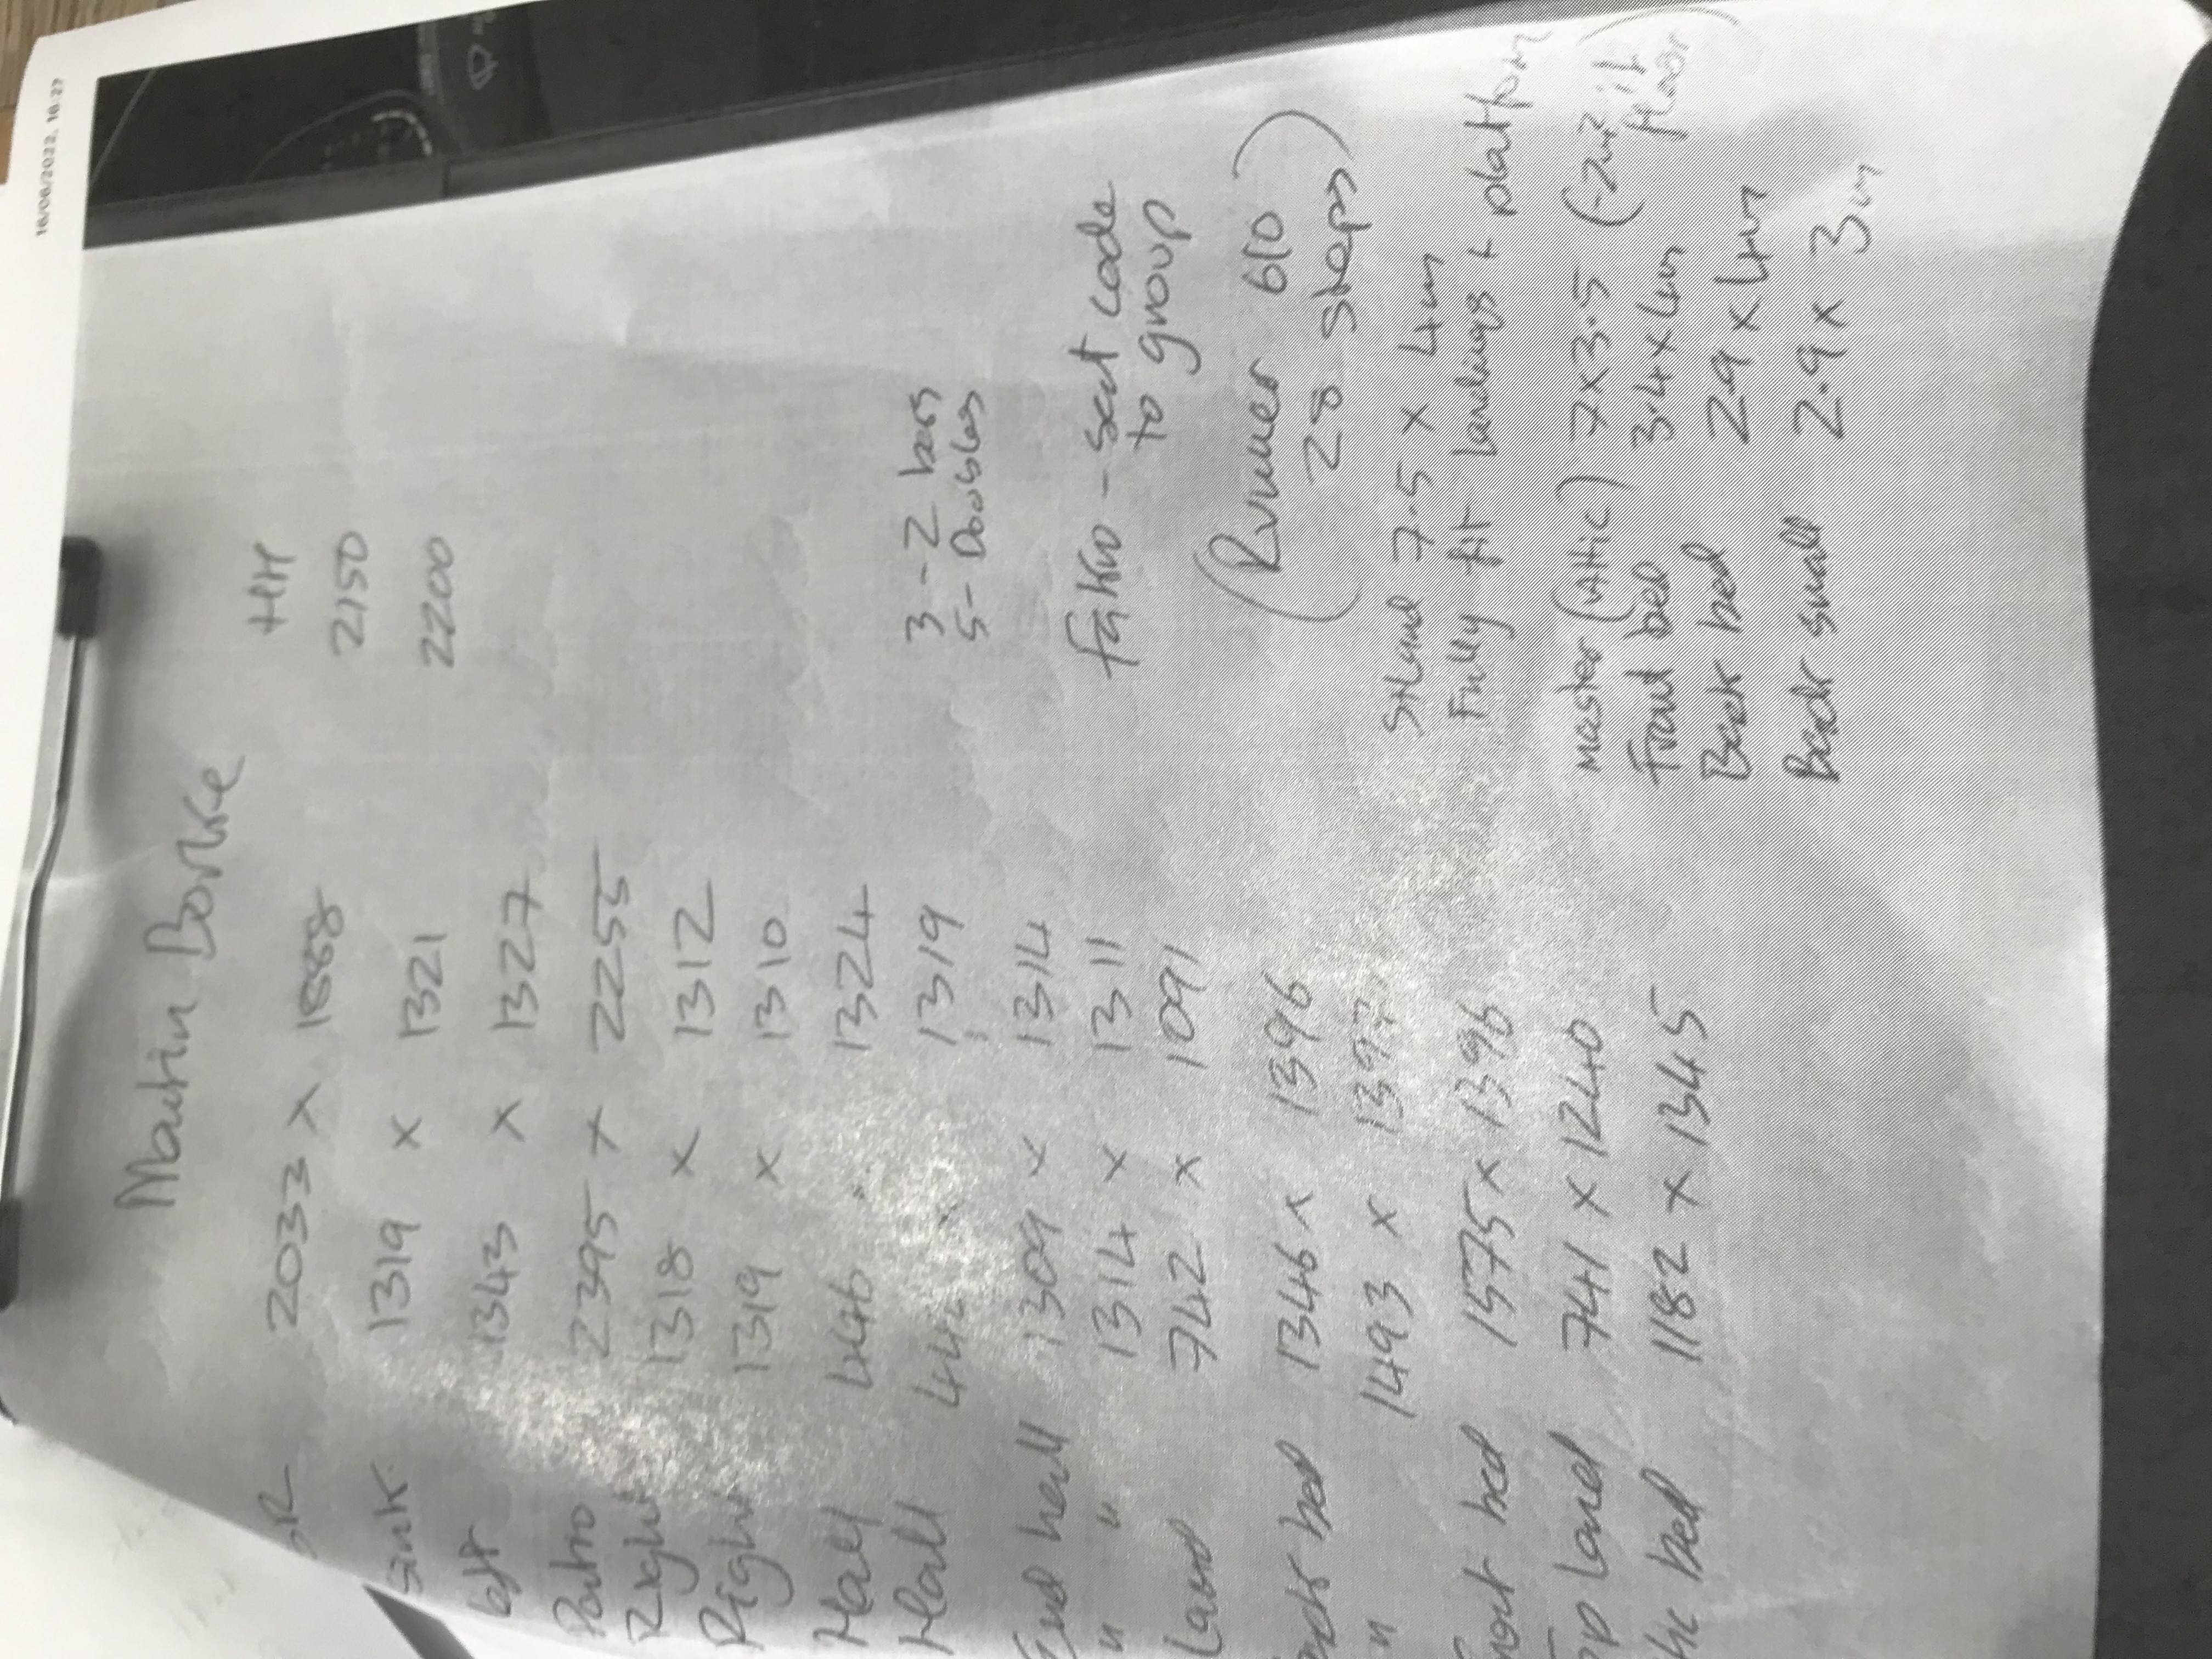 18/08/2022, 16:27
Martin Borke
HH
2033 x 1888 2150
Sink 1319 x 1321 2200
left 1343 x 1327
Patio 2395 x 2255
Right 1318 x 1312
Right 1319 x 1310
Hall 446 1324
Hall 444 1319 3 - 2 bars
5 - Doubles
End hall 1309 x 1314
" " 1314 x 1311 Fakro - sent code
to group
Land 742 x 1091
(Runner 610
28 steps)
bed 1346 x 1396
" 1493 x 1397
StLand 7.5 x 4m
Fully fit landings + platform
bed 1575 x 1396
Land 741 x 1240 Master (Attic) 7x3.5 (-2m² if
floor)
bed 1182 x 1345 Front bed 3.4 x 4m
Back bed 2.9 x 4m
Back small 2.9 x 3m